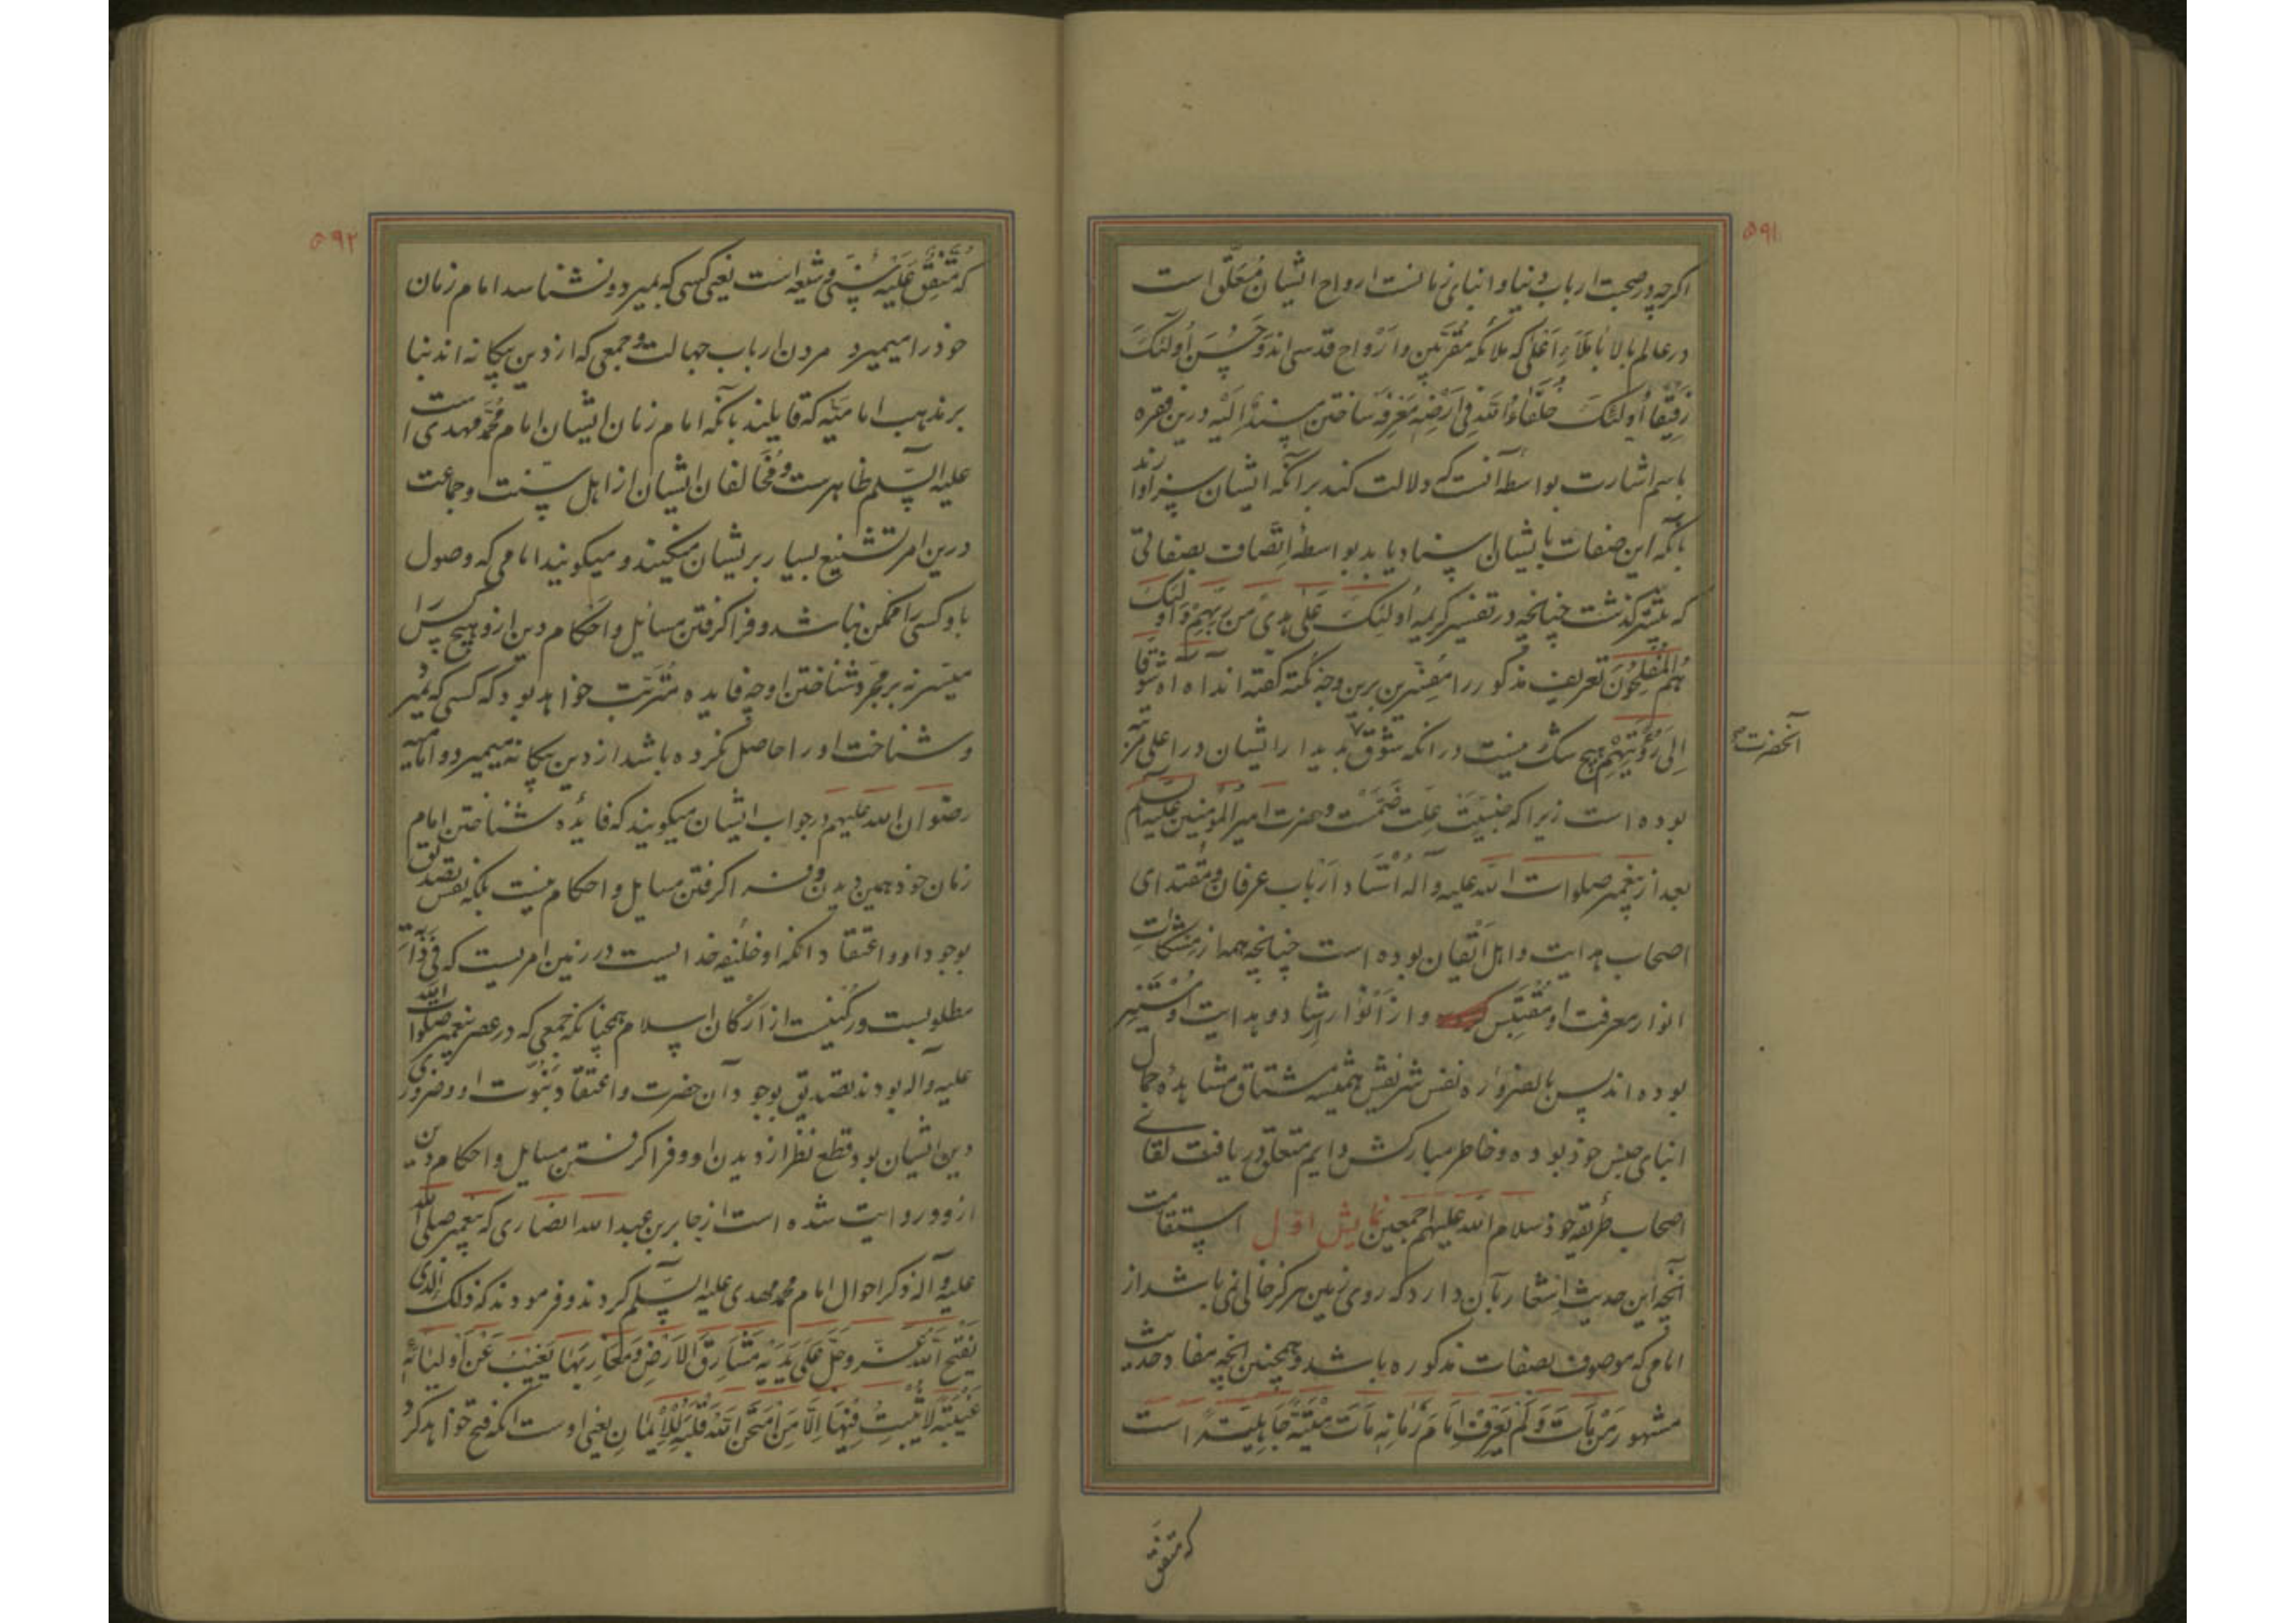 ۵۹۱
اکرچه در صحبت ارباب دنیا و ابنای زمانست ارواح ایشان مُعَلَّق است
در عالم بالا بَمَلَاءِ اَعْلیٰ که ملائکه مُقَرَّبین و اَرْواح قدسی اند وَحَسُنَ اُولٰئِکَ
رَفِیْقًا اُولٰئِکَ خُلَفَاءُ اللّٰهِ فِی اَرْضِهِ مَعْرِفَه ساختن مسندٌ اِلَیْه درین فقره
باسم اشارت بواسطه آنست که دلالت کند بر آنکه ایشان سزاوارند
بآنکه این صفات بایشان اسناد یابد بواسطهٔ اِتّصاف بصفاتی
که پیشتر کذشت چنانچه در تفسیر کریمه اُولٰئِکَ عَلیٰ هُدیً مِنْ رَبِّهِمْ وَ اُولٰئِکَ
هُمُ الْمُفْلِحُونَ تعریف مذکور را مُفَسّرین برین وجه نکته کفته اند آه آه شَوْقًا
اِلیٰ رُؤْیَتِهِمْ هیچ شک نیست در انکه شوق بدیدار ایشان در اعلی مرتبه
آنحضرت
بوده است زیرا که جِنْسِیَّتْ عِلَّت ضَمَّسْت و حضرت امیر المؤمنین علیه السلم
بعد از پیغمبر صلوات اللّٰه علیه و آله اُسْتاد اَرْباب عرفان و مُقْتدای
اصحاب هدایت و اهل اتقان بوده است چنانچه همه از مِشْکات
انوار معرفت او مُقْتَبِس و از اَنْوار ارشاد و هدایت او مُسْتَنیر
بوده اند پس بالضروره نفس شریفش همیشه مشتاق مشاهدهٔ جمال
ابنای جنس خود بوده و خاطر مبارکش دایم متعلق دریافت لقای
اصحاب طریقهٔ خود سلام اللّٰه علیهم اجمعین نمایش اوّل استقامت
آنچه این حدیث اِشْعار بآن دارد که روی زمین هرکز خالی نمی باشد از
امامی که موصوف بصفات مذکوره باشد و همچنین انچه مفاد حدیث
مشهور مَنْ مَاتَ وَلَمْ یَعْرِفْ اِمَامَ زَمَانِهِ مَاتَ مِیْتَةً جَاهِلِیَّةً است
که متفق
۵۹۲
که مُتَّفِقٌ عَلَیْه سُنّی و شیعه است یعنی کسی که بمیرد و نشناسد امام زمان
خود را میمیرد مردن ارباب جهالت و جمعی که از دین بیکانه اند بنا
بر مذهب امامیّه که قایلند بآنکه امام زمان ایشان امام مُحمّد مهدی است
علیه السّلم ظاهرست و مُخالفان ایشان از اهل سنّت و جماعت
درین امر تشنیع بسیار بریشان میکنند و میکویند امامی که وصول
باو کسی را ممکن نباشد و فرا کرفتن مسائل و احکام دین ازو هیچ کس را
میسّر نه بر مجرّد شناختن او چه فایده مُتَرَتّب خواهد بود که کسی که بمیرد
و شناخت او را حاصل نکرده باشد از دین بیکانه میمیرد و امامیه
رضوان اللّٰه علیهم در جواب ایشان میکویند که فائدهٔ شناختن امام
زمان خود همین دیدن و فرا کرفتن مسایل و احکام نیست بلکه نفس تصدیق
بوجود او و اعتقاد آنکه او خلیفه خدایست در زمین امریست که فی ذاتِه
مطلوبست و رکنیست از ارکان اسلام همچنانکه جمعی که در عصر پیغمبر صلوات اللّٰه
علیه و آله بودند تصدیق بوجود آن حضرت و اعتقاد نبوّت او ضروری
دین ایشان بود قطع نظر از دیدن او و فرا کرفتن مسایل و احکام دین
ازو و روایت شده است از جابر بن عبد اللّٰه انصاری که پیغمبر صلی اللّٰه
علیه و آله ذکر احوال امام محمد مهدی علیه السّلم کردند و فرمودند که ذلک الَّذی
یَفْتَحُ اللّٰهُ عَزَّ وجَلَّ عَلیٰ یَدَیْهِ مَشَارِقَ الْاَرْضِ وَ مَغَارِبَهَا یَغِیْبُ عَنْ اَوْلِیَائِهِ
غَیْبَةً لَا یَثْبُتُ فِیْهَا اِلَّا مَنِ امْتَحَنَ اللّٰهُ قَلْبَهُ لِلْاِیْمَانِ یعنی اوست انکه فتح خواهد کرد